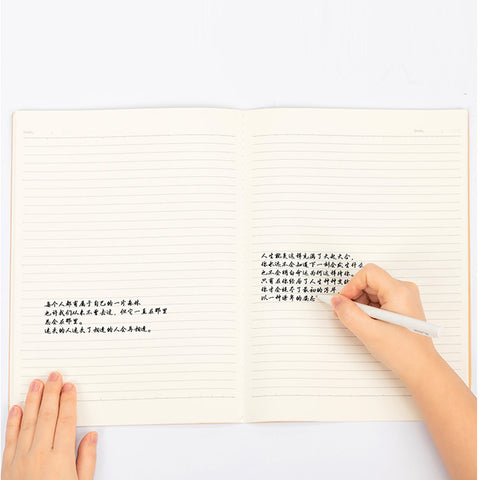 每个人都有属于自己的一片森林
也许我们从来不曾去过，但它一直在那里
总会在那里。
迷失的人迷失了相逢的人会再相逢。
人生就是这样充满了大起大合，
你永远不会知道下一刻会发生什么
也不会明白命运为何这样待你。
只有在你经历了人生种种变故
你才会褪尽了最初的浮华
以一种谦卑的姿态